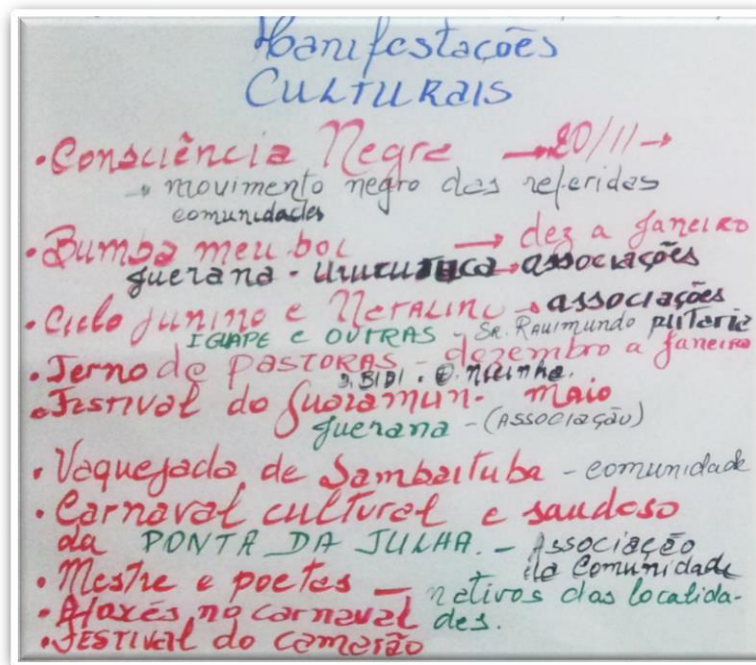 Manifestações
CULTURAIS
• Consciência Negre → 20/11 →
→ movimento negro das referidas
comunidades
• Bumba meu boi → dez a Janeiro
Juerana - Urucutuca → associações
• Ciclo junino e Natalino → associações
IGUAPE E OUTRAS - SR. RAUIMUNDO
• Terno de PASTORAS - dezembro a Janeiro
D. BIDI.
• FESTIVAL do Guaiamun - maio
Juerana - (ASSOCIAÇÃO)
• Vaquejada de Sambaituba - comunidade
• Carnaval cultural e saudoso
da PONTA DA TULHA. - Associação
da Comunidade
• Mestre e poetas - netivos das localida-
• Afoxés no carnaval des.
• FESTIVAL do camarão